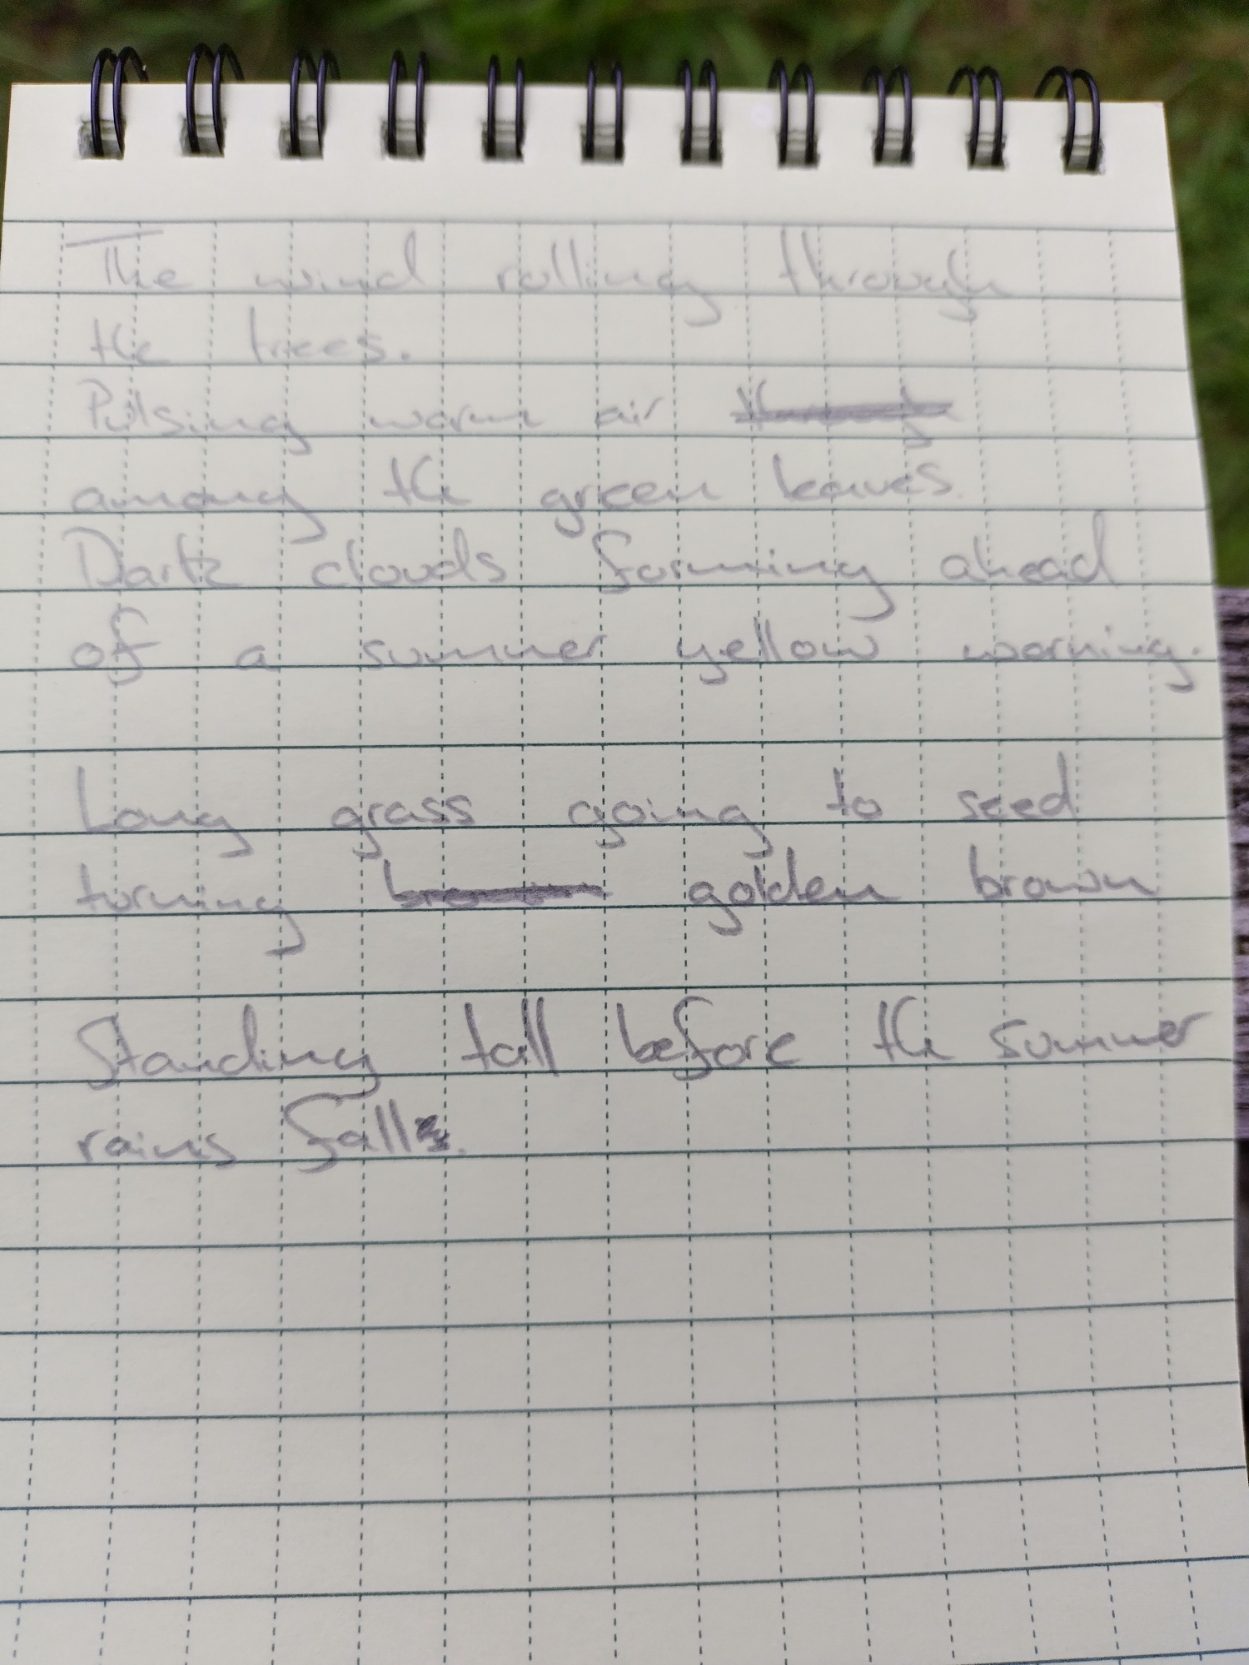 The wind rolling through
the trees.
Pulsing warm air
among the green leaves.
Dark clouds forming ahead
of a summer yellow warning.
Long grass going to seed
turning golden brown
Standing tall before the summer
rains fall.